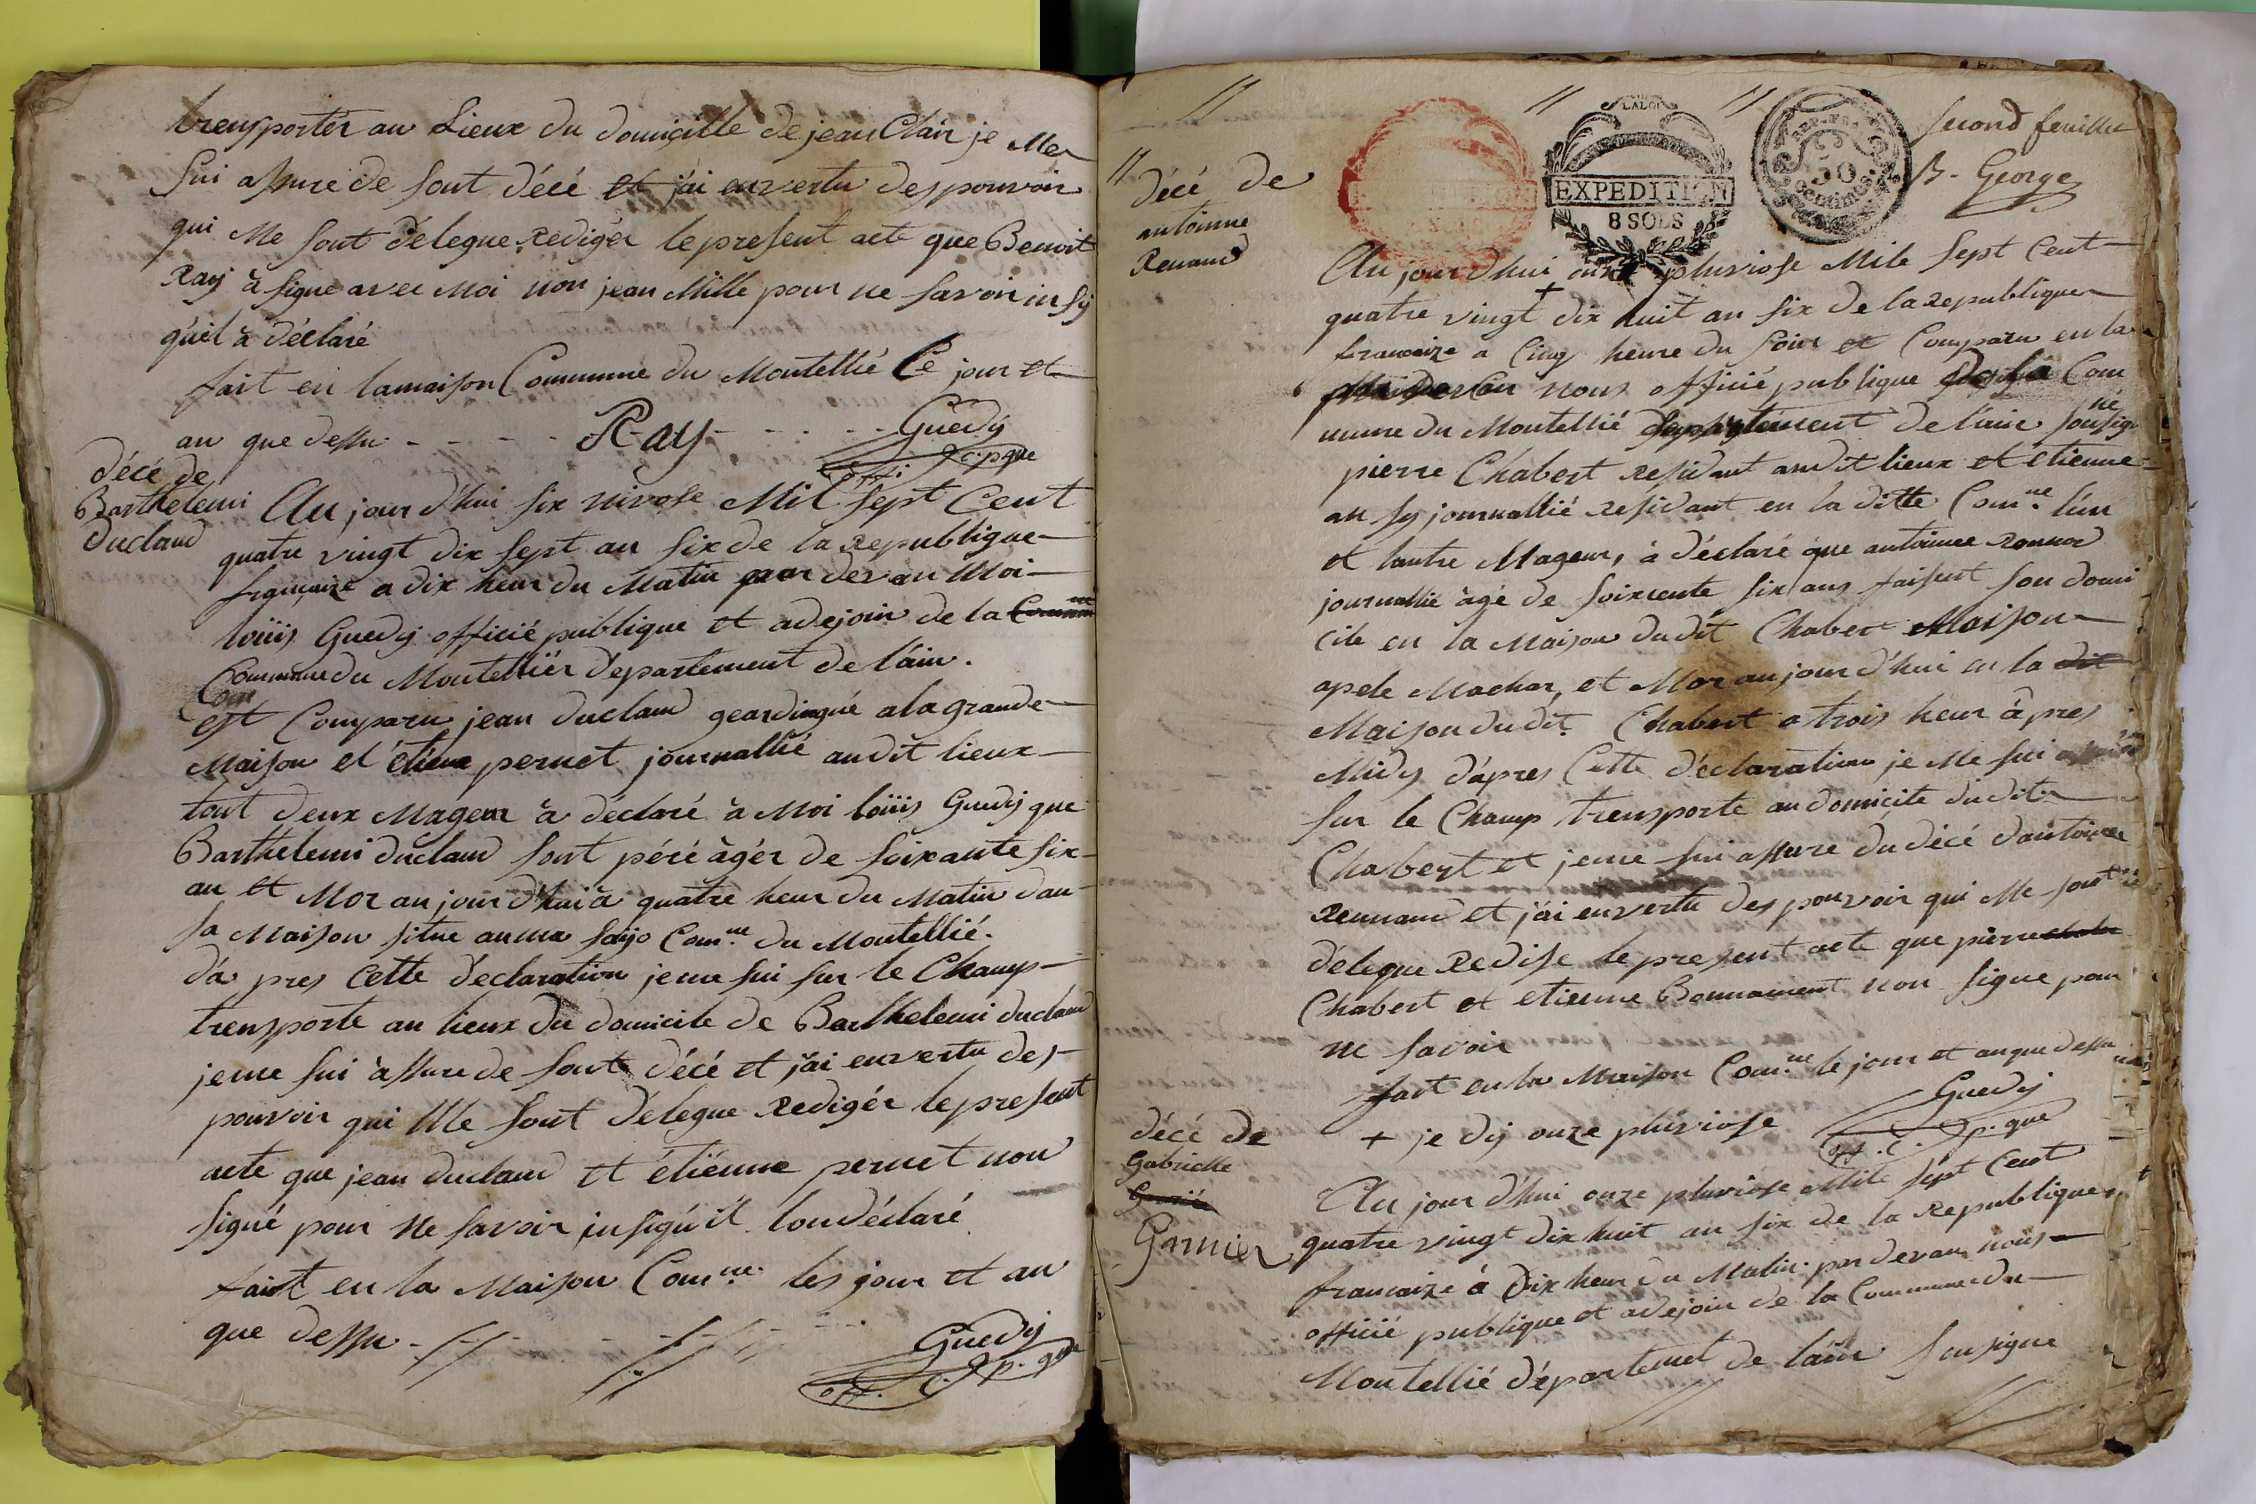 transporter au Lieux du domicille de jean Clair je Me
sui assure de sont décé et j'ai envertu des pouvoir
qui Me sont délegue redigér le present acte que Benoit
Ray à signe avec Moi non jean Mille pour ne savoir insÿ
qu'il à déclaré
fait en lamaison Commune du Montellié Ce jour et
an que dessu
Ray
Guedÿ
offi p.que
décé de
Barthelemi
Duclaud
Au jour d'hui six nivose Mil sept Cent
quatre vingt dix sept an six de la republique
française a dix heur du Matin par devan Moi
loüis Guedÿ officié publique et adejoin de la
Commune du Montelliér département de l'ain.
Com
est Comparu jean duclaud geardingué ala grande
Maison et étiene pernet journallié audit lieux
tout deux Mageur à déclaré à Moi loüis Guedÿ que
Barthelemi duclaud sont péré àgér de soixante six
an et Mor au jour d'hui à quatre heur du Matin dan
sa Maison situe Com.ne du Montellié.
d'a pres Cette déclaration jeme sui sur le Champ
transporte au lieux du domicile de Barthelemi duclaud
jeme sui assure de sont décé et j'ai envertu des
pouvoir qui Me sont délegue redigér le present
acte que jean duclaud et étiénne pernet non
signé pour Ne savoir insiqu'il lon déclaré
fait en la Maison Com.ne les jour et an
que dessu
Guedÿ
off. p. que
LALOI
EXPEDITION
8 SOLS
REP. FRA.
50
centimes.
second feuillet
B. George
décé de
antoinne
Renaud
Au jour d'hui onze pluviose Mile sept Cent
+
quatre vingt dix huit an six de la republique
francaize a Cinq heure du soir et Comparu en la
nous officié publique Com
mune du Montellié département de l'ain sousigné
pierre Chabert residant audit lieux et etienne
journallié residant en la ditte Com.ne l'un
et lautre Mageur, à déclaré que antoinee
journallié àgé de soixcente six ans faisent son domi
cile en la Maison dudit Chabert Maison
apele Machar, et Mor aujourd'hui en la dit
Maison dudit Chabert a trois heur àpres
Midÿ d'apres Cette déclaration je Me sui
sur le Champ transporte au domicile dudit
Chabert et jeme sui assure du décé d'antoinee
Rennaud et j'ai envertu des pouvoir qui Me sont
délegue redise le present acte que pierre
Chabert et etienne Bonnament non signe pour
ne savoir
fait en la Maison Com.ne le jour et an que dessu
Guedÿ
off. p. que
+ je dÿ onze pluviose
décé de
Gabrielle
Grenier
Au jour d'hui onze pluviose Mile sept Cent
quatre vingt dix huit an six de la republique
francaize à dix heur du Matin par devan nous
officié publique et adejoin de la Commune du
Montellié départemet de lain sousigne